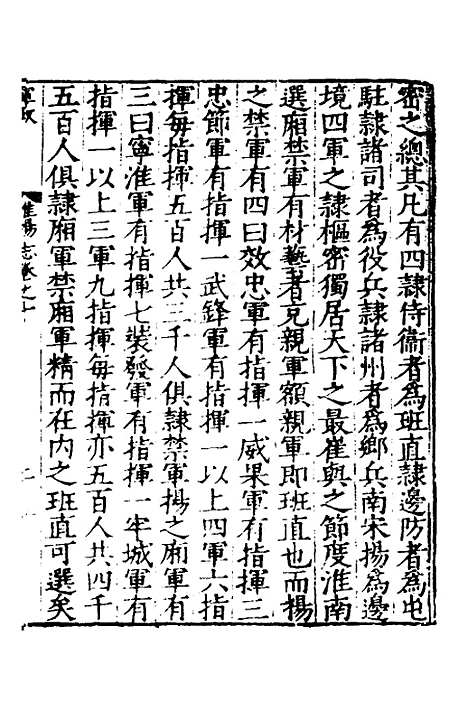 密之總其凡有四隷侍衞者為班直隷邊防者為屯
駐隷諸司者為役兵隷諸州者為鄉兵南宋揚為邊
境四軍之隷樞密獨居天下之最崔與之節度淮南
選廂禁軍有材藝者充親軍額親軍即班直也而楊
之禁軍有四曰效忠軍有指揮一威果軍有指揮三
忠節軍有指揮一武鋒軍有指揮一以上四軍六指
揮每指揮五百人共三千人俱隷禁軍揚之廂軍有
三曰寧淮軍有指揮七裝發軍有指揮一牢城軍有
指揮一以上三軍九指揮每指揮亦五百人共四千
五百人俱隷廂軍禁廂軍精而在内之班直可選矣
惟揚志卷之十
軍政